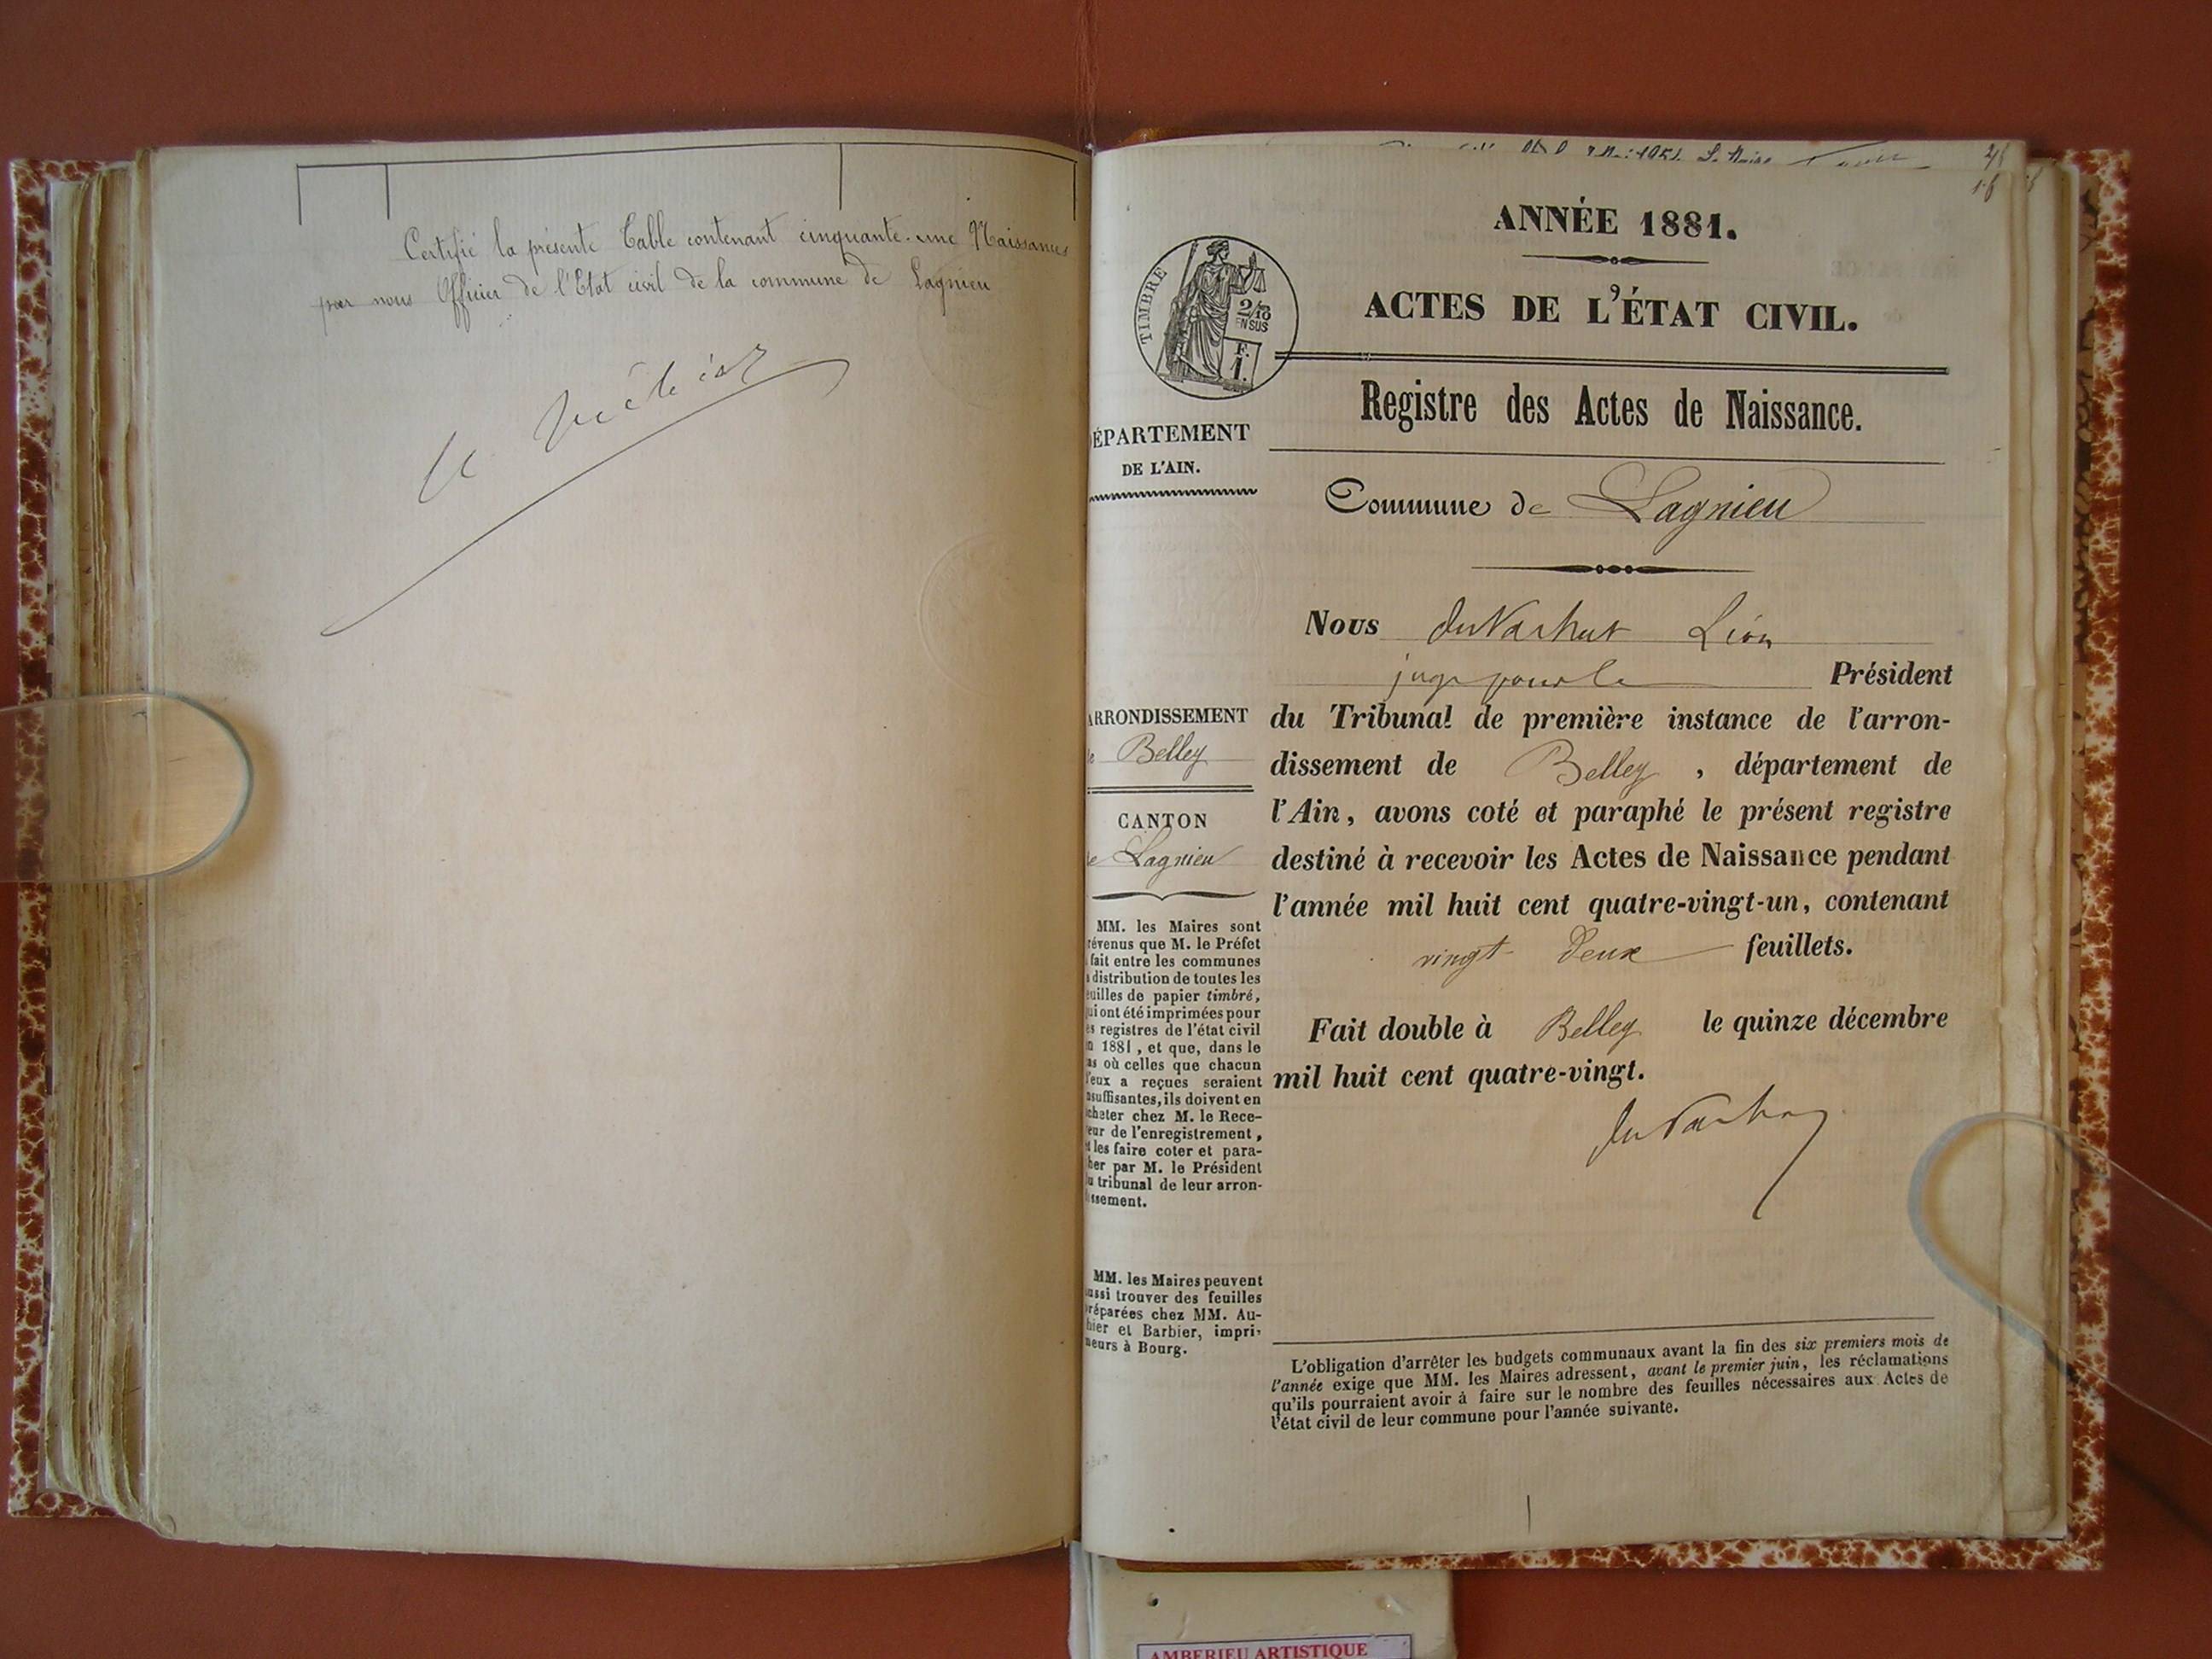 Certifié la présente Table contenant cinquante-une Naissances
par nous Officier de l'Etat civil de la commune de Lagnieu
ANNÉE 1881.
ACTES DE L'ÉTAT CIVIL.
TIMBRE
2/10
EN SUS
F.
1.
Registre des Actes de Naissance.
ÉPARTEMENT
DE L'AIN.
Commune de Lagnieu
Nous Léon
juge pour le Président
du Tribunal de première instance de l'arron-
dissement de Belley, département de
l'Ain, avons coté et paraphé le présent registre
destiné à recevoir les Actes de Naissance pendant
l'année mil huit cent quatre-vingt-un, contenant
vingt deux feuillets.
Fait double à Belley le quinze décembre
mil huit cent quatre-vingt.
ARRONDISSEMENT
Belley
CANTON
Lagnieu
MM. les Maires sont
révenus que M. le Préfet
fait entre les communes
a distribution de toutes les
euilles de papier timbré,
ui ont été imprimées pour
es registres de l'état civil
n 1881, et que, dans le
as où celles que chacun
'eux a reçues seraient
nsuffisantes, ils doivent en
cheter chez M. le Rece-
eur de l'enregistrement,
t les faire coter et para-
her par M. le Président
u tribunal de leur arron-
issement.
MM. les Maires peuvent
ussi trouver des feuilles
réparées chez MM. Au-
hier et Barbier, impri-
meurs à Bourg.
L'obligation d'arrêter les budgets communaux avant la fin des six premiers mois de
l'année exige que MM. les Maires adressent, avant le premier juin, les réclamations
qu'ils pourraient avoir à faire sur le nombre des feuilles nécessaires aux Actes de
l'état civil de leur commune pour l'année suivante.
AMBERIEU ARTISTIQUE